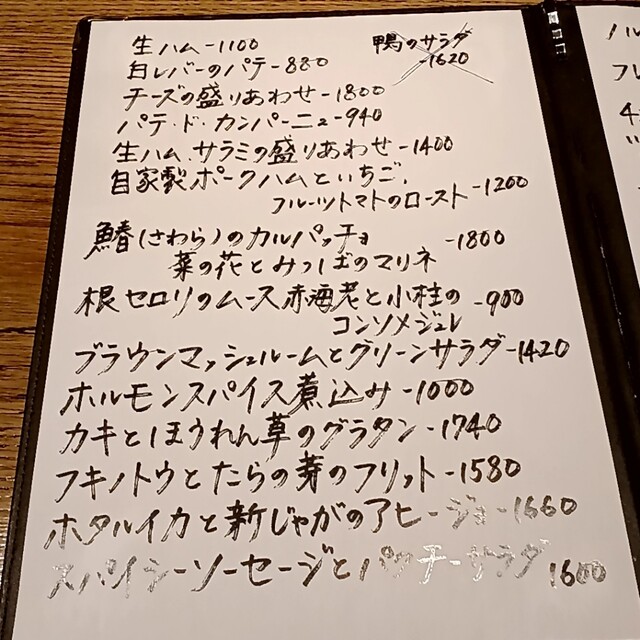 生ハム-1100
鴨のサラダ
-1620
白レバーのパテ-880
チーズの盛りあわせ-1800
パテ・ド・カンパーニュ-940
生ハム、サラミの盛りあわせ-1400
自家製ポークハムといちご、
フルーツトマトのロースト-1200
鰆(さわら)のカルパッチョ -1800
菜の花とみつばのマリネ
根セロリのムース赤海老と小柱の -900
コンソメジュレ
ブラウンマッシュルームとグリーンサラダ-1420
ホルモンスパイス煮込み-1000
カキとほうれん草のグラタン-1740
フキノトウとたらの芽のフリット-1580
ホタルイカと新じゃがのアヒージョ-1660
スパイシーソーセージとパクチーサラダ 1600
ハル
フレ